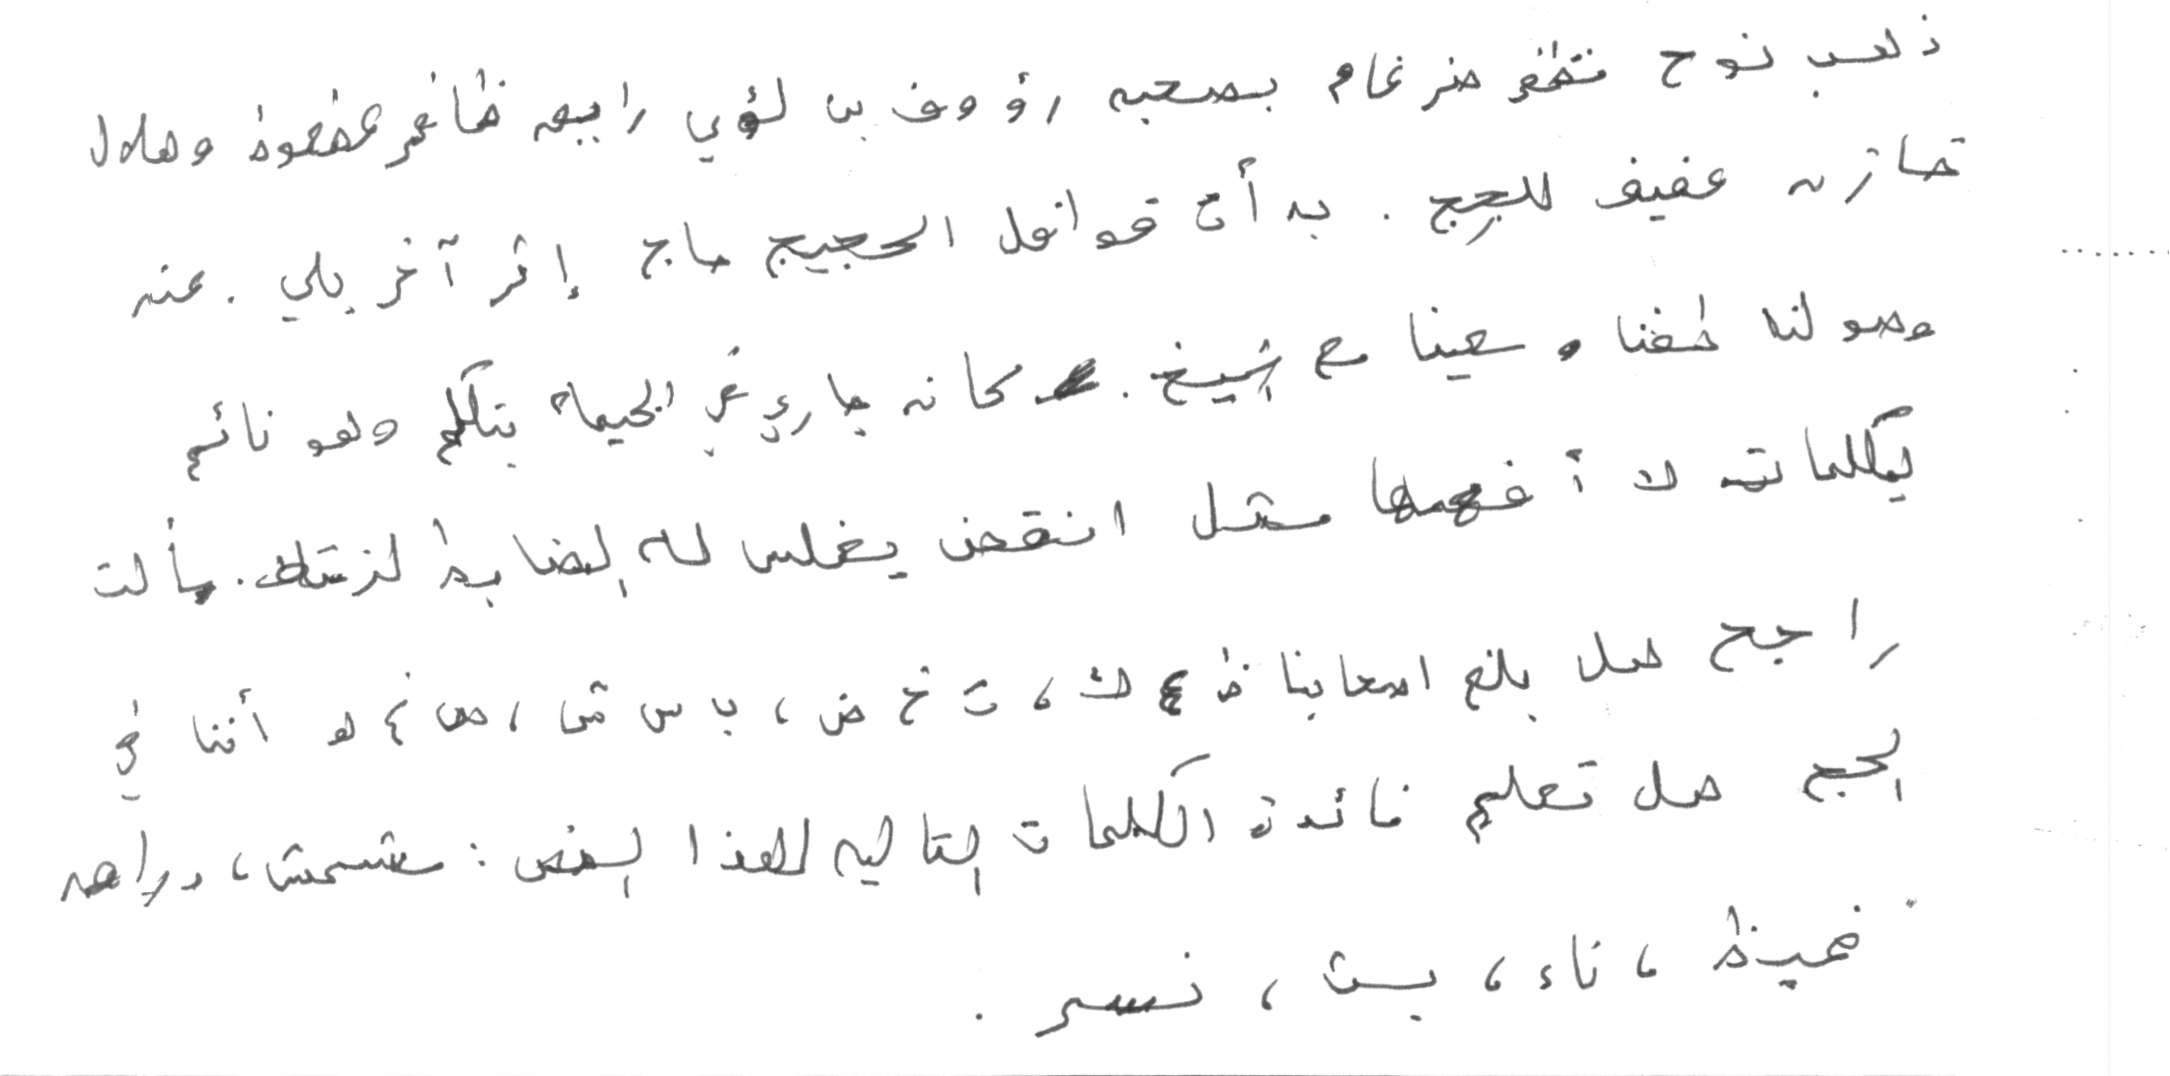 ذهب نوح مظفر ضرغام بصحبه رؤوف بن لؤي راجي ظافر عطعوط وهلال
مازن عفيف للحج . بدأت قوافل الحجيج حاج إثر آخر يلي . عند
وصولنا طفنا وسعينا مع الشيخ . كان جاري في الخيمة يتكلم وهو نائم
بكلمات لا أفهمها مثل انقض يغلس له الضابط لزمتك . سألت
راجح هل بلغ اصحابنا ظ ع ك ، ث خ ض ، ب س ش ، ص غ هـ أننا في
الحج هل تعلم فائدة الكلمات التالية لهذا النص : مشمش ، دراهم
، ناء ، بث ، نسر .